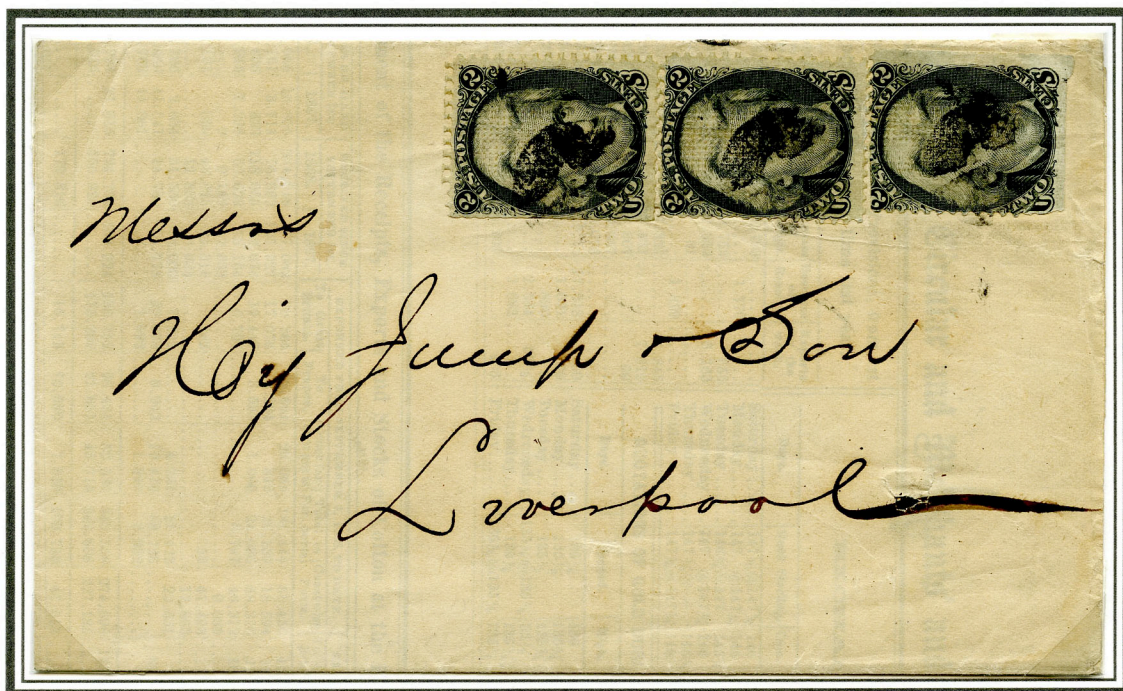 2 U.S. POSTAGE 2 TWO CENTS
2 U.S. POSTAGE 2 TWO CENTS
2 U.S. POSTAGE 2 TWO CENTS
Messrs
Hy Jump & Son
Liverpool